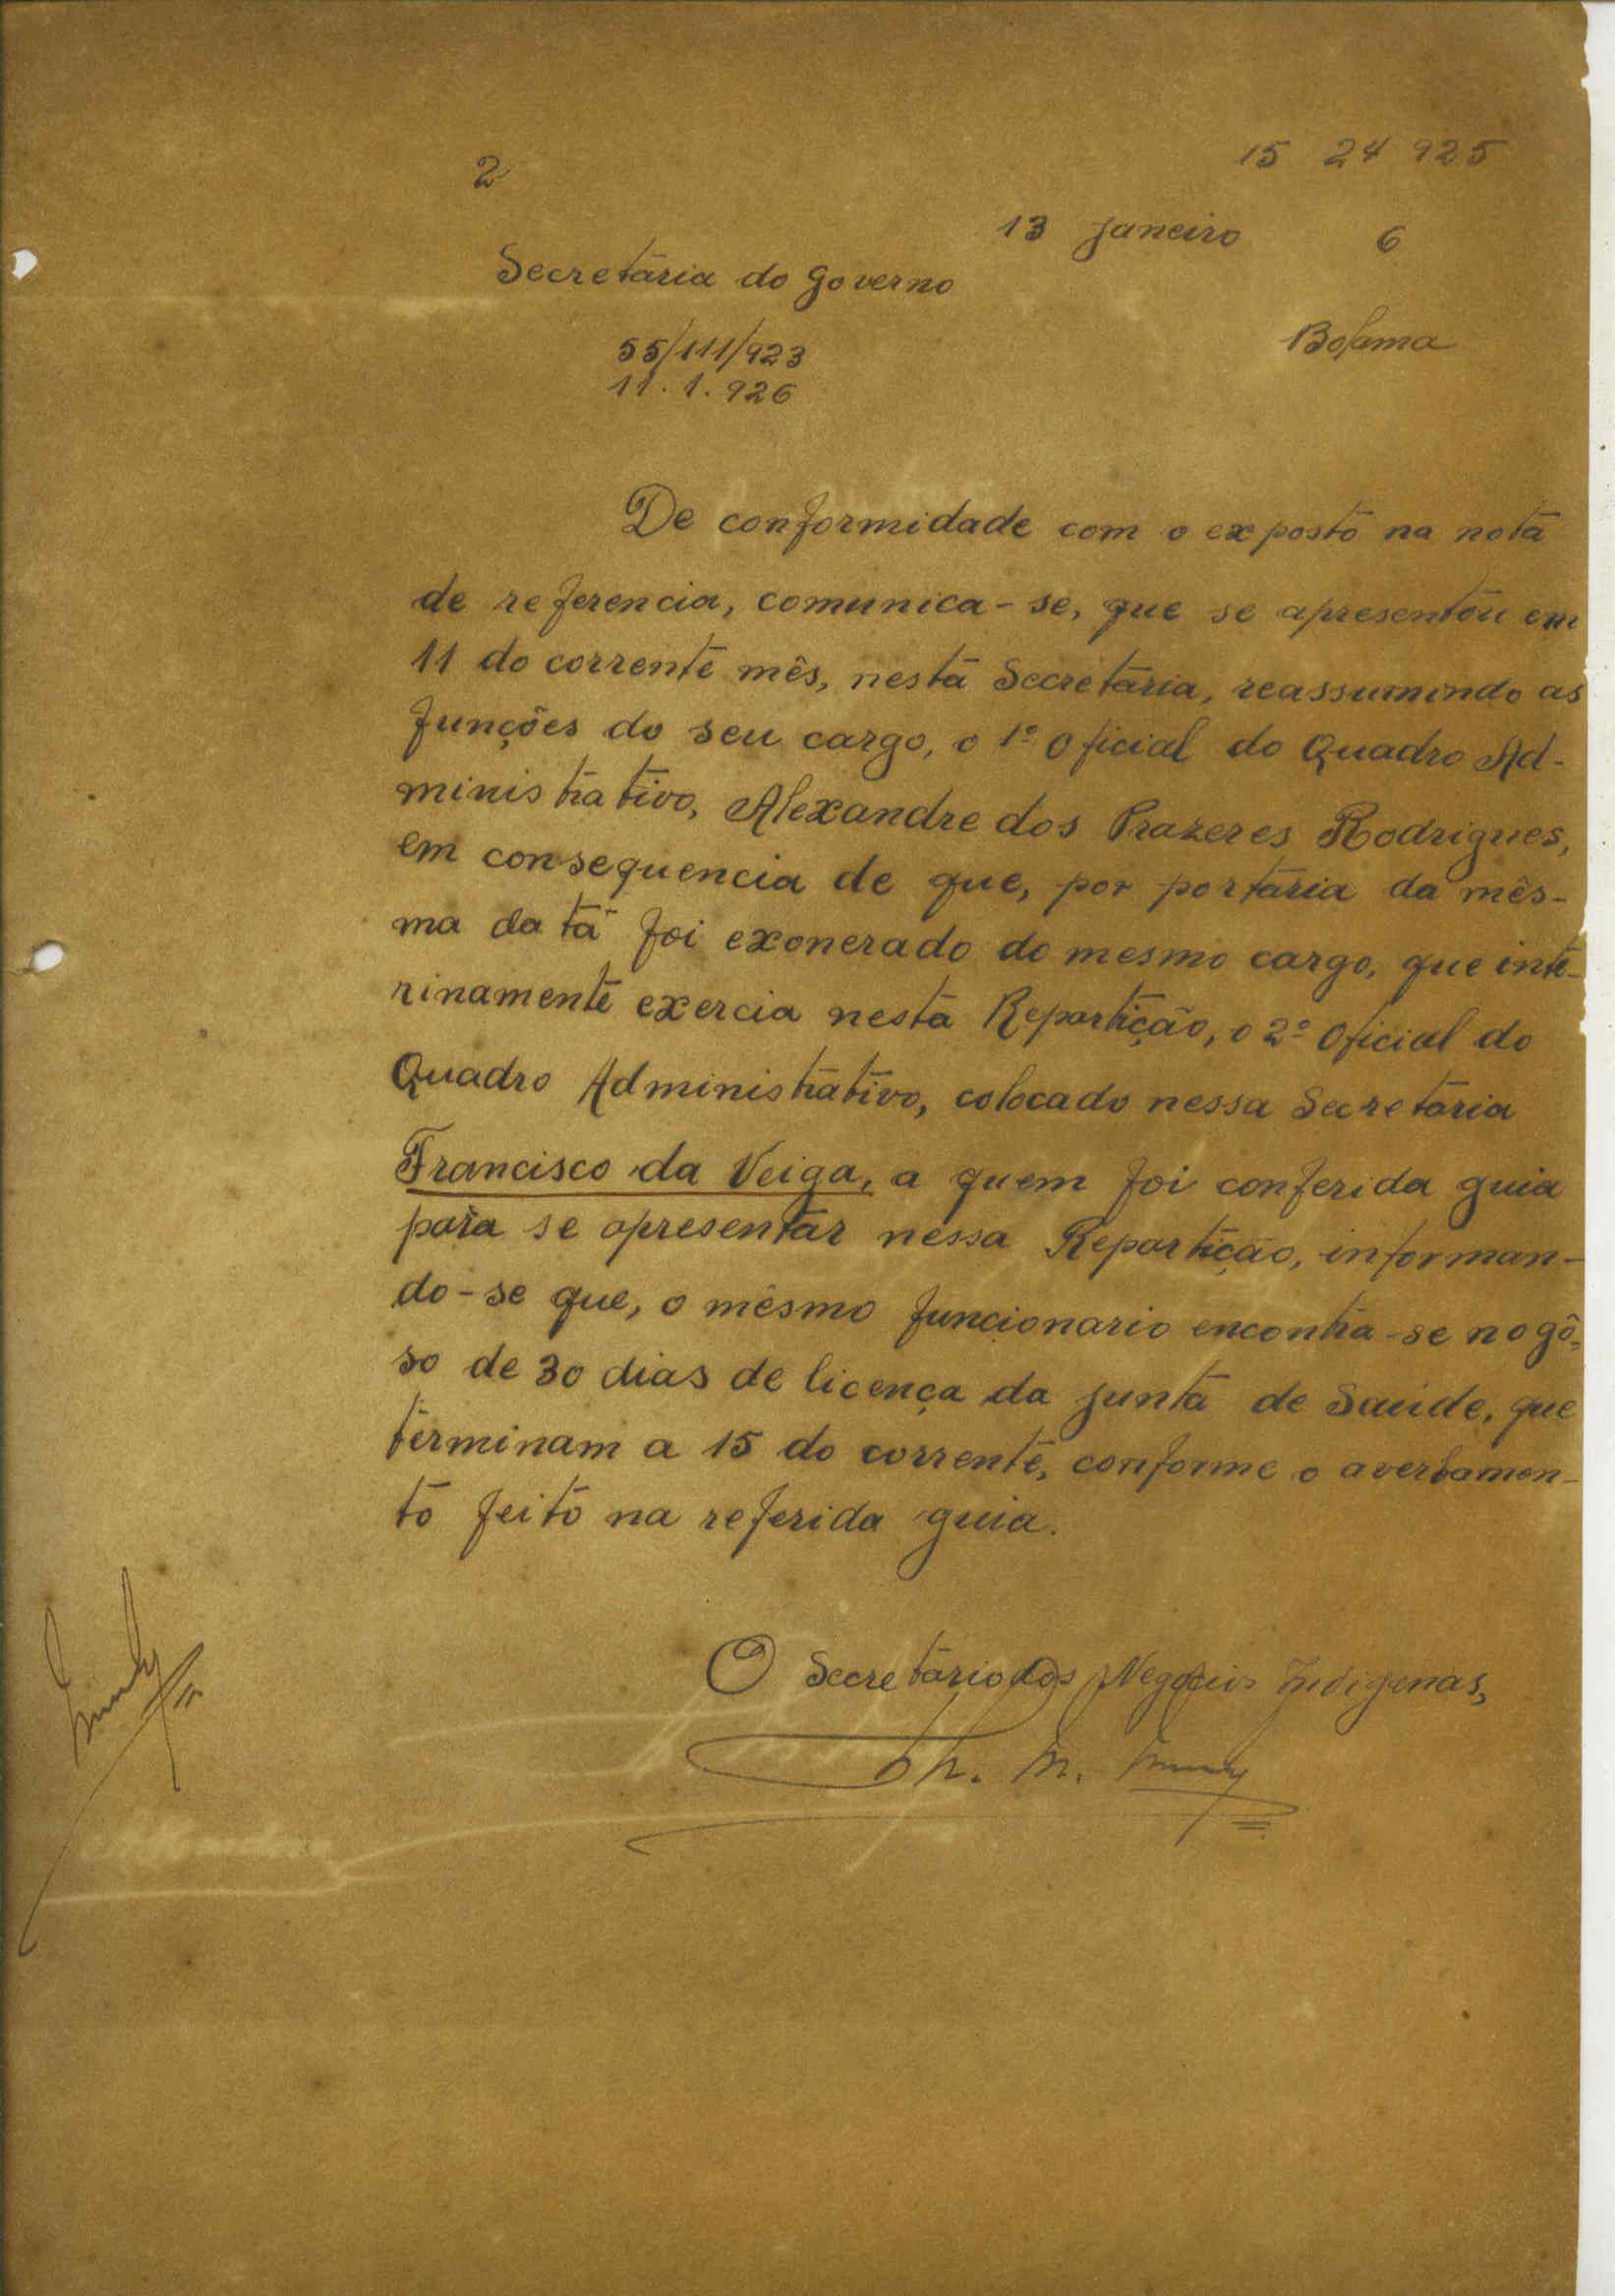 15 24 925
2
13 Janeiro 6
Secretária do Governo
Bolama
55/111/923
11.1.926
De conformidade com o exposto na nota
de referencia, comunica-se, que se apresentou em
11 do corrente mês, nesta Secretaria, reassumindo as
funções do seu cargo, o 1º Oficial do Quadro Ad-
ministrativo, Alexandre dos Prazeres Rodrigues,
em consequencia de que, por portaria da mês-
ma data foi exonerado do mesmo cargo, que inte-
rinamente exercia nesta Repartição, o 2º Oficial do
Quadro Administrativo, colocado nessa Secretaria
Francisco da Veiga, a quem foi conferida guia
para se apresentar nessa Repartição, informan-
do-se que, o mêsmo funcionario encontra-se no gô-
so de 30 dias de licença da Junta de Saúde, que
terminam a 15 do corrente, conforme o averbamen-
to feito na referida guia.
O Secretário dos Negocios Indigenas,